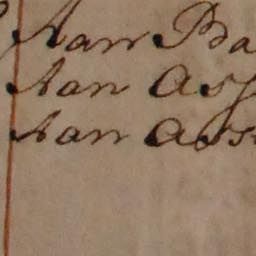 Aan Ba
Aan Ass
Aan Ass